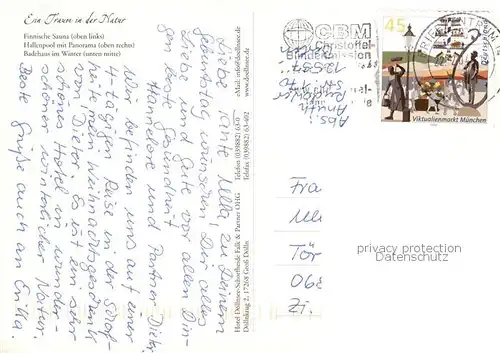 Ein Traum in der Natur
Finnische Sauna (oben links)
Hallenpool mit Panorama (oben rechts)
Badehaus im Winter (unten mitte)
Liebe Ulla, zu Deinem
Geburtstag wünschen Dir alles
Liebe und Gute vor allen Din-
gen beste Gesundheit
Hannelore und Partner Dieter.
Wir befinden uns auf einer
4-tägigen Reise in der Schorf-
heide mein Weihnachtsgeschenk
von Dieter. Es ist ein sehr
schönes Hotel in wunder-
schöner winterlicher Natur.
Beste Grüße auch an Erika.
Hotel Döllnsee-Schorfheide Falk & Partner OHG
Döllnkrug 2, 17268 Groß Dölln
Telefon (039882) 63-0
Telefax (039882) 63-402
eMail: info@doellnsee.de
www.doellnsee.de
Abs:
CBM
Christoffel-
Blindenmission
BRIEFZENTRUM
45
Viktualienmarkt München
Fra
Ull
Tör
068
Zi.
privacy protection
Datenschutz